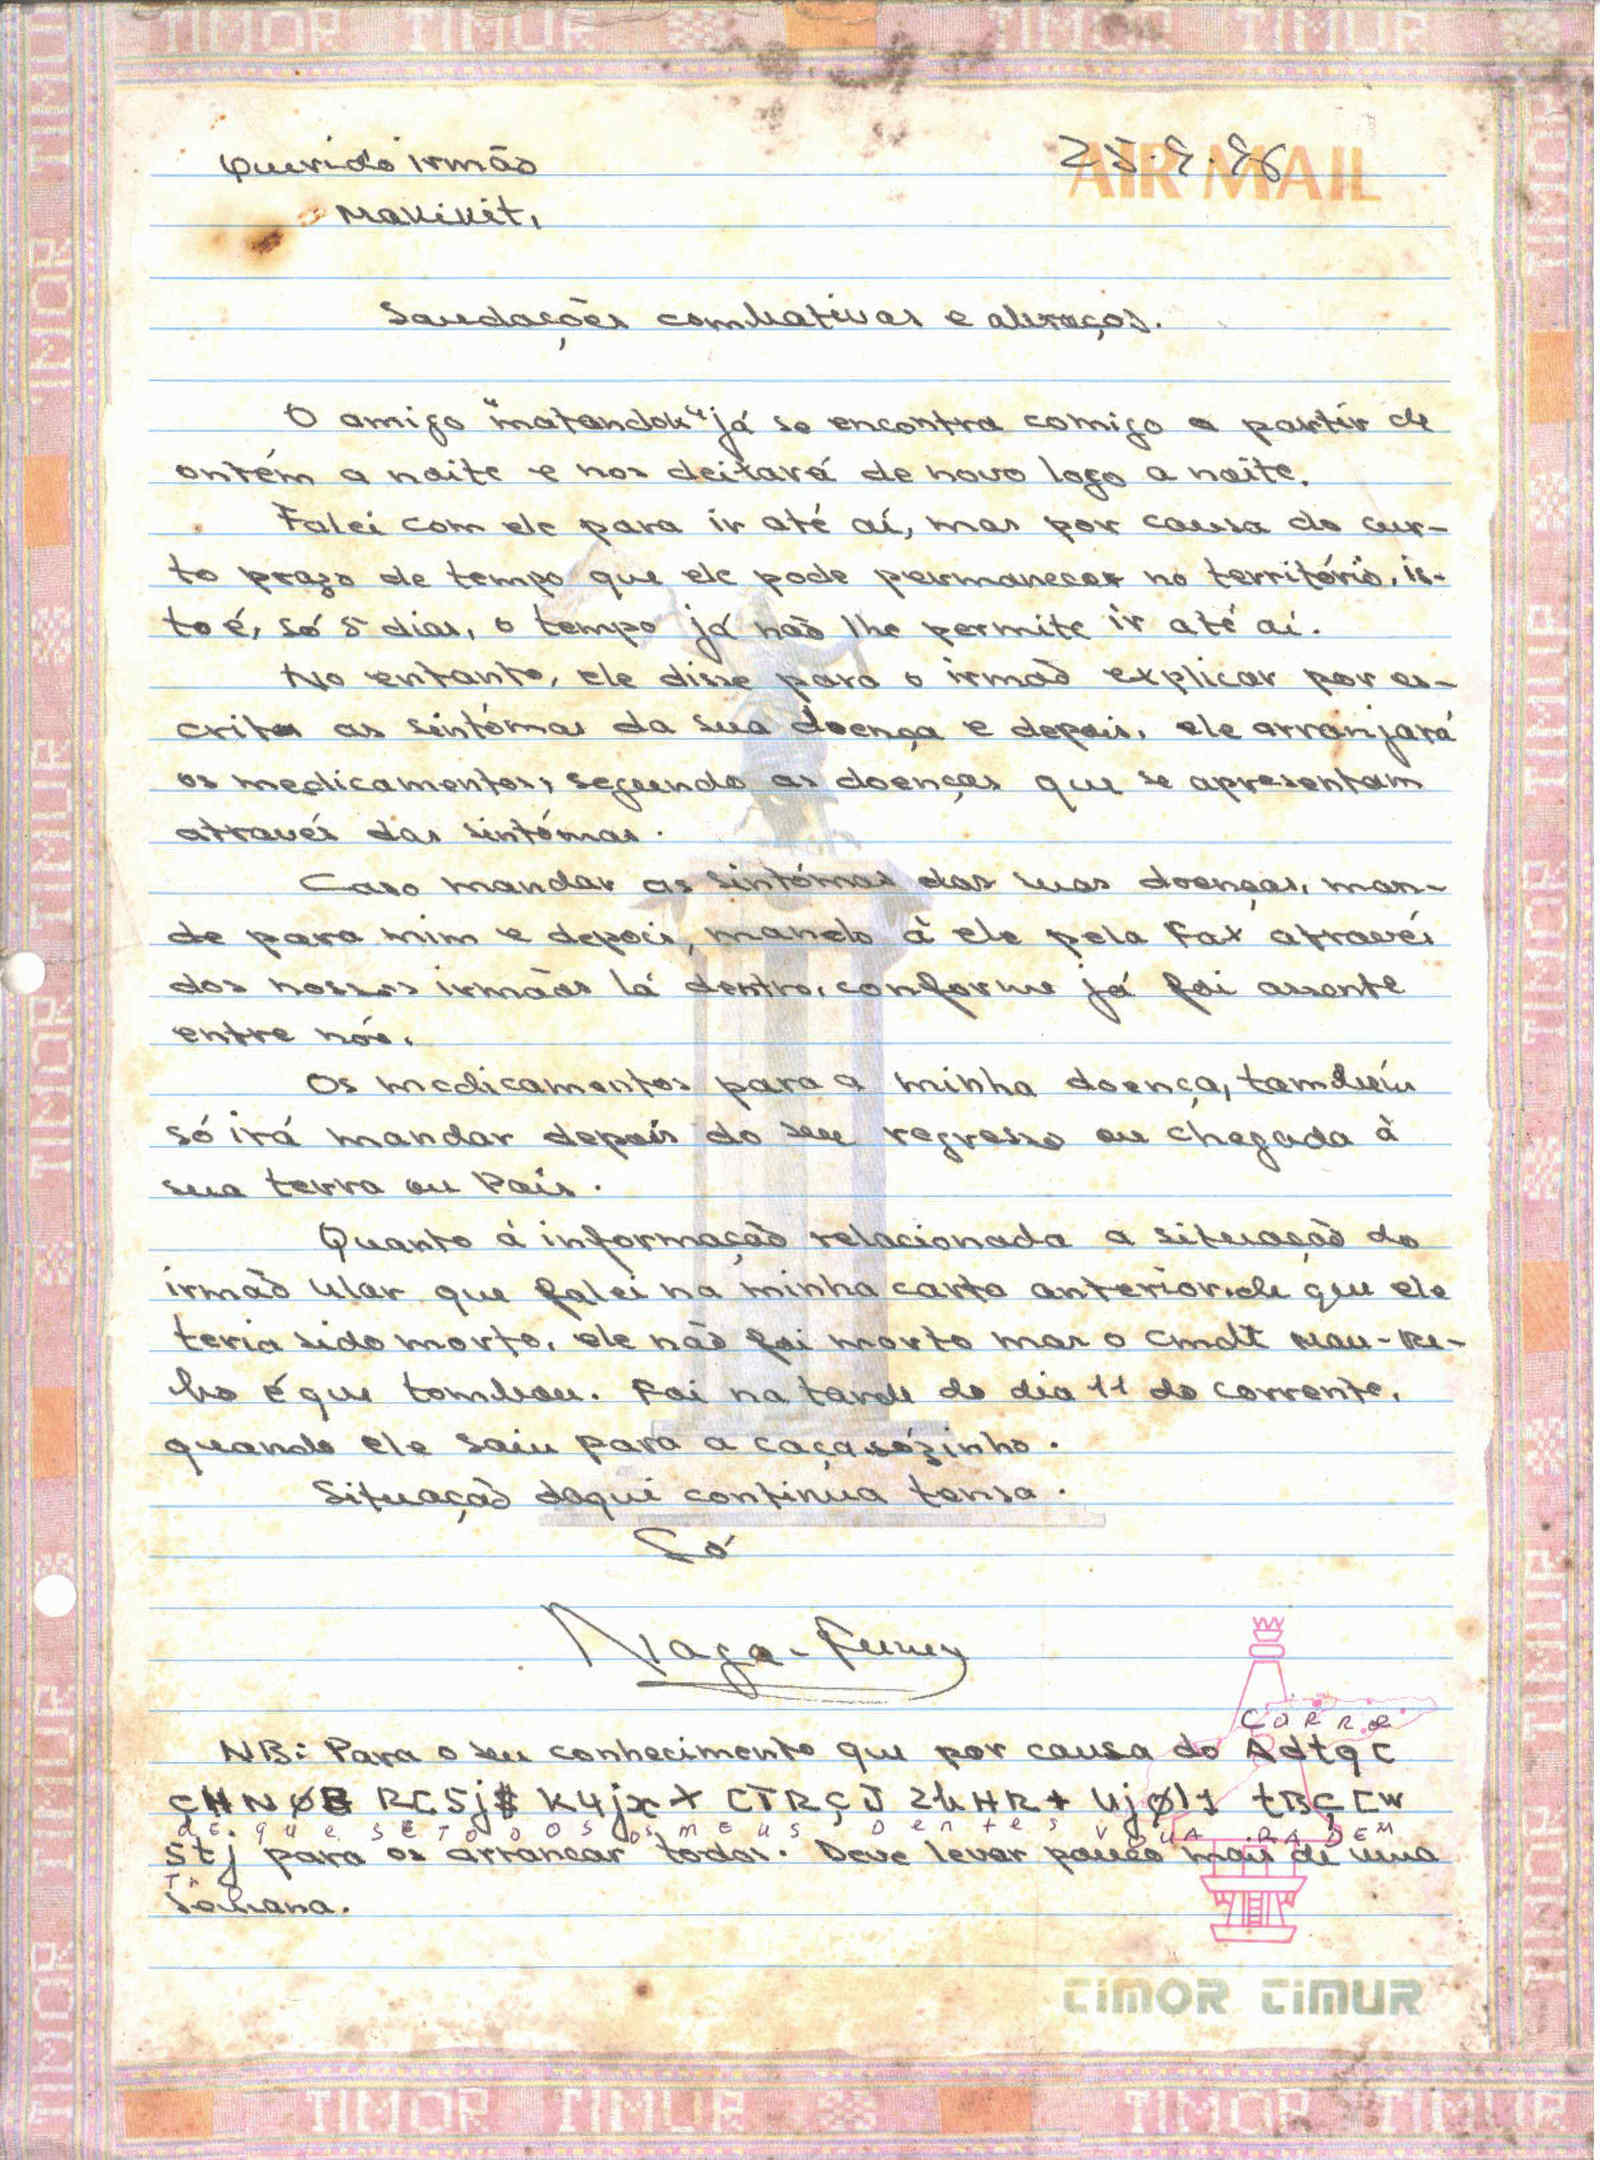 TIMOR TIMUR TIMOR TIMUR
AIR MAIL
Querido irmão
Makikit,
Saudações combativas e abraços.
O amigo "matandok" já se encontra comigo a partir de
ontém a noite e nos deitará de novo logo a noite.
Falei com ele para ir até aí, mas por causa do cur-
to prazo de tempo que ele pode permanecer no território, is-
to é, só 5 dias, o tempo já não lhe permite ir até aí.
No entanto, ele disse para o irmão explicar por es-
crito as sintómas da sua doença e depois, ele arranjará
os medicamentos, segundo as doenças que se apresentam
através das sintómas.
Caso mandar as sintómas das suas doenças, man-
de para mim e depois, mando à ele pela Fax através
dos nossos irmãos lá dentro, conforme já foi assente
entre nós.
Os medicamentos para a minha doença, também
só irá mandar depois do seu regresso ou chegada à
sua terra ou País.
Quanto á informação relacionada a situação do
irmão Ular que falei na minha carta anterior, de que ele
teria sido morto, ele não foi morto mas o Cmdt
é que tombou. Foi na tarde do dia 11 do corrente,
quando ele saiu para a caça sózinho.
Situação daqui continua tensa.
Só
CORRE
NB: Para o seu conhecimento que por causa do Adtqc
RC5j$ K4jx+ CTRÇJ 2hHR+ Ujø11 tBÇCW
de que SETO DOS OS MEUS Dentes VOUA RADEM
5tj para os arrancar todos. Deve levar pouco mais de uma
semana.
TIMOR TIMUR
TIMOR TIMUR TIMOR TIMUR